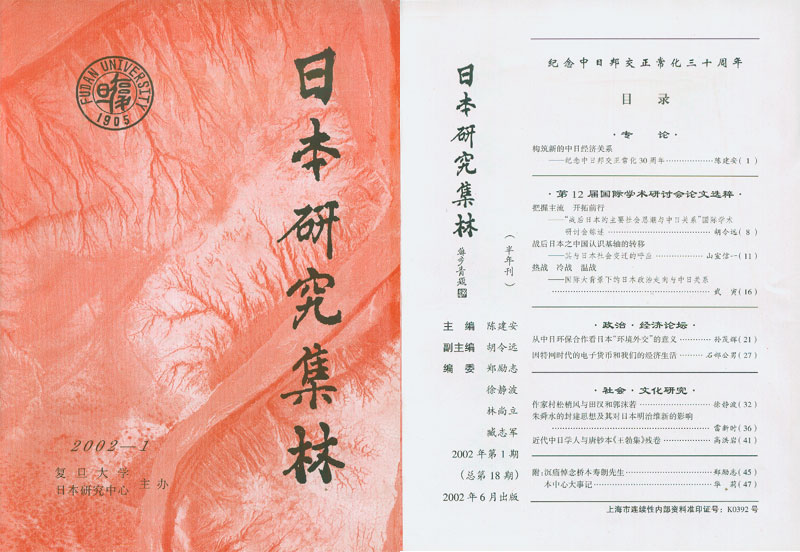 FUDAN UNIVERSITY
1905
日本研究集林
2002—1
复旦大学
日本研究中心 主办
日本研究集林
(半年刊)
苏步青题
主 编 陈建安
副主编 胡令远
编 委 郑励志
徐静波
林尚立
臧志军
2002年第1期
(总第18期)
2002年6月出版
纪念中日邦交正常化三十周年
目 录
·专 论·
构筑新的中日经济关系
——纪念中日邦交正常化30周年……………陈建安(1)
·第12届国际学术研讨会论文选粹·
把握主流 开拓前行
——“战后日本的主要社会思潮与中日关系”国际学术
研讨会综述……………胡令远(8)
战后日本之中国认识基轴的转移
——其与日本社会变迁的呼应……………山室信一(11)
热战 冷战 温战
——国际大背景下的日本政治走向与中日关系
……………武 寅(16)
·政治·经济论坛·
从中日环保合作看日本“环境外交”的意义……………孙茂辉(21)
因特网时代的电子货币和我们的经济生活……………石部公男(27)
·社会·文化研究·
作家村松梢风与田汉和郭沫若……………徐静波(32)
朱舜水的封建思想及其对日本明治维新的影响
……………雷新时(36)
近代中日学人与唐钞本《王勃集》残卷……………高洪岩(41)
附:沉痛悼念桥本寿朗先生……………郑励志(45)
本中心大事记……………华 莉(47)
上海市连续性内部资料准印证号:K0392号